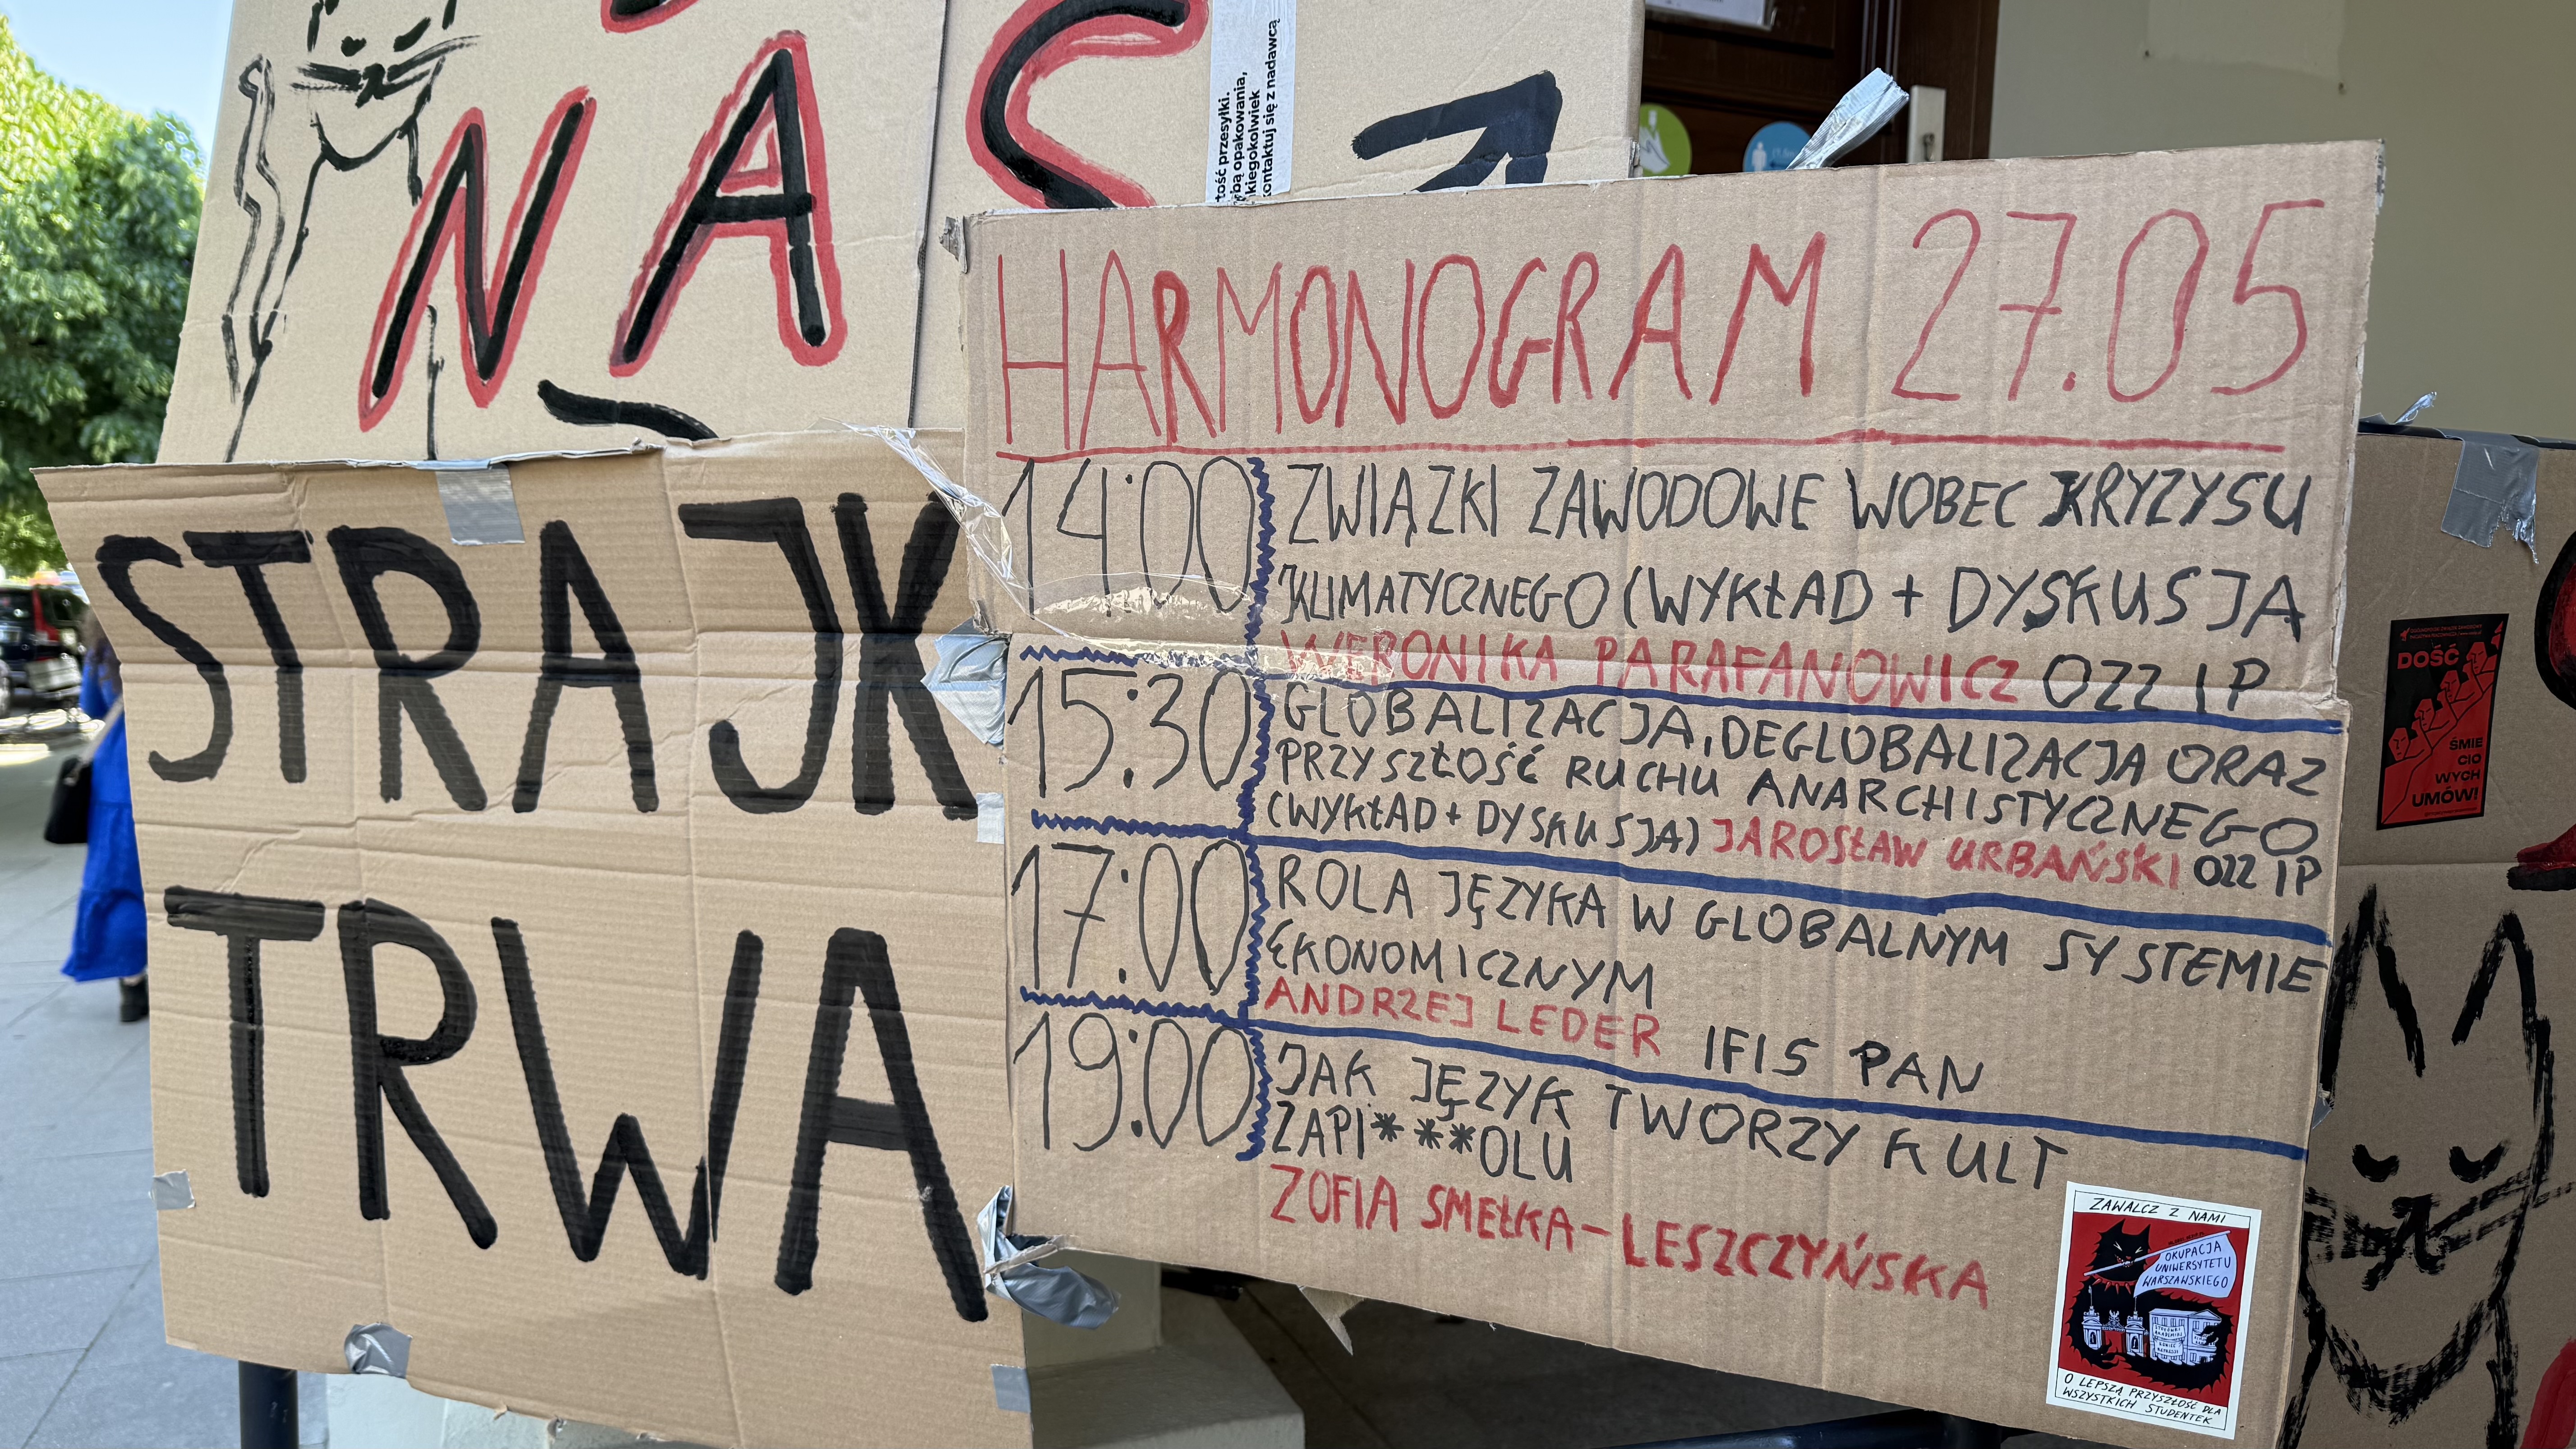 NAS
tość przesyłki.
bą opakowania,
kiegokolwiek
ontaktuj się z nadawcą
STRAJK
TRWA
HARMONOGRAM 27.05
14:00 ZWIĄZKI ZAWODOWE WOBEC KRYZYSU
KLIMATYCZNEGO (WYKŁAD + DYSKUSJA
WERONIKA PARAFANOWICZ OZZ IP
15:30 GLOBALIZACJA, DEGLOBALIZACJA ORAZ
PRZYSZŁOŚĆ RUCHU ANARCHISTYCZNEGO
(WYKŁAD + DYSKUSJA) JAROSŁAW URBAŃSKI OZZ IP
17:00 ROLA JĘZYKA W GLOBALNYM SYSTEMIE
EKONOMICZNYM
ANDRZEJ LEDER IFIS PAN
19:00 JAK JĘZYK TWORZY KULT
ZAPI***OLU
ZOFIA SMEŁKA-LESZCZYŃSKA
ZAWALCZ Z NAMI
OKUPACJA
UNIWERSYTETU
WARSZAWSKIEGO
O LEPSZĄ PRZYSZŁOŚĆ DLA
WSZYSTKICH STUDENTEK
DOŚĆ
ŚMIE
CIO
WYCH
UMÓW!